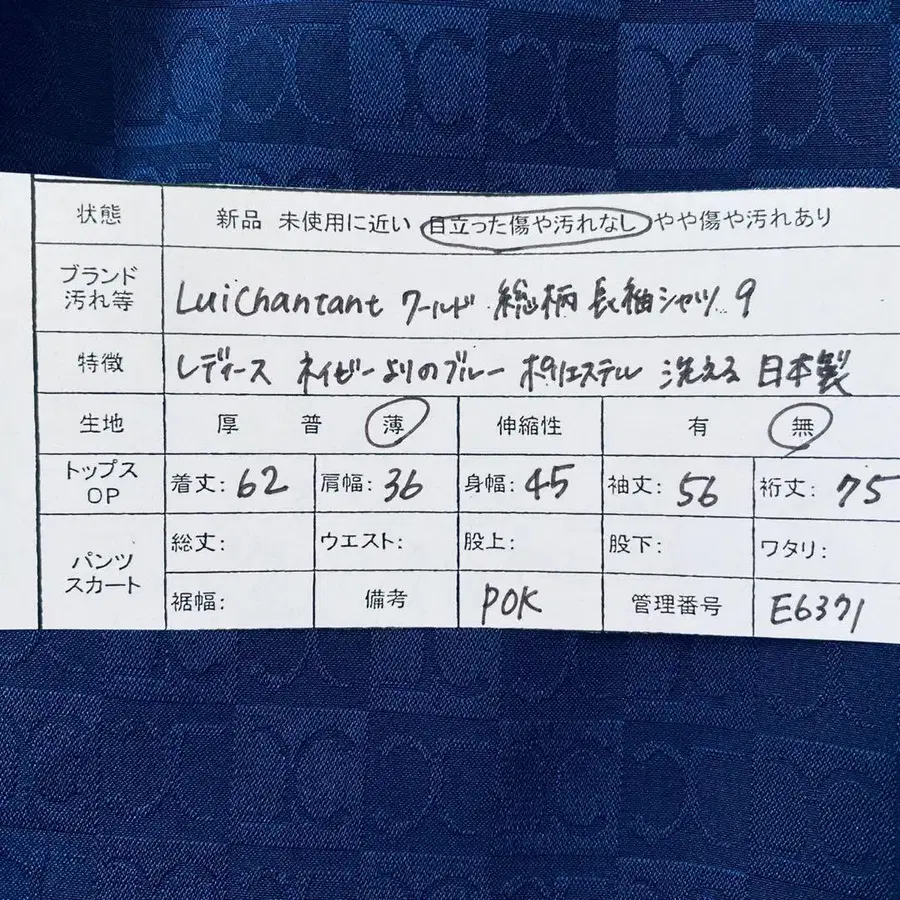 状態 新品 未使用に近い 目立った傷や汚れなし やや傷や汚れあり
ブランド
汚れ等 LuiChantant ワールド 総柄 長袖シャツ 9
特徴 レディース ネイビーよりのブルー ポリエステル 洗える 日本製
生地 厚 普 薄 伸縮性 有 無
トップス
OP 着丈: 62 肩幅: 36 身幅: 45 袖丈: 56 裄丈: 75
パンツ
スカート 総丈: ウエスト: 股上: 股下: ワタリ:
裾幅: 備考 POK 管理番号 E6371